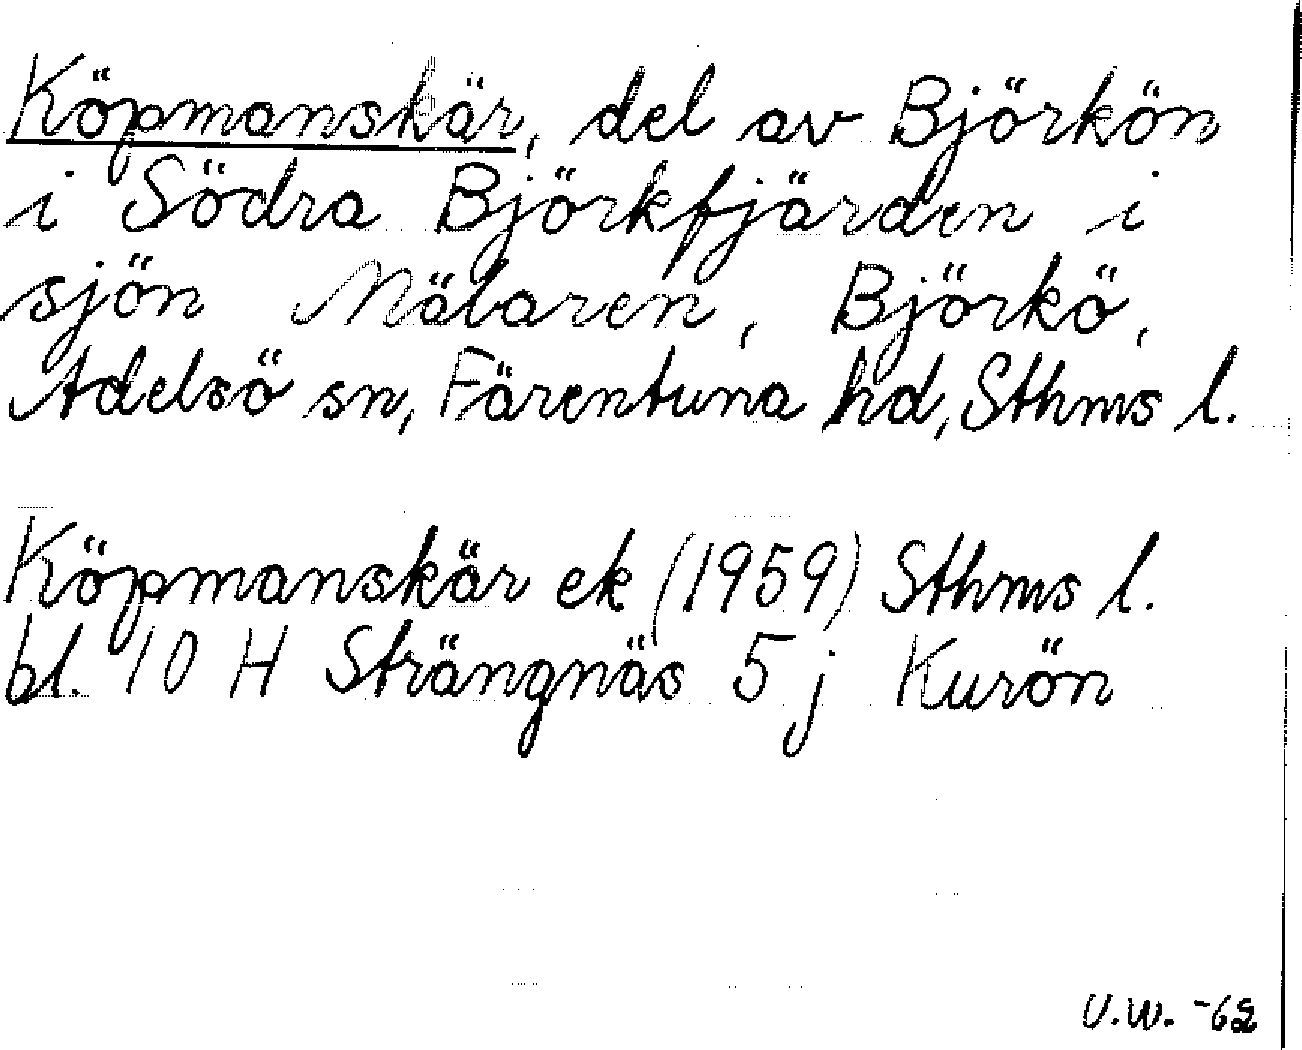 Köpmanskär, del av Björkön
i Södra Björkfjärden i
sjön Mälaren, Björkö,
Adelsö sn, Färentuna hd, Sthms l.
Köpmanskär ek (1959) Sthms l.
bl. 10 H Strängnäs 5 j Kurön
U.W. -62